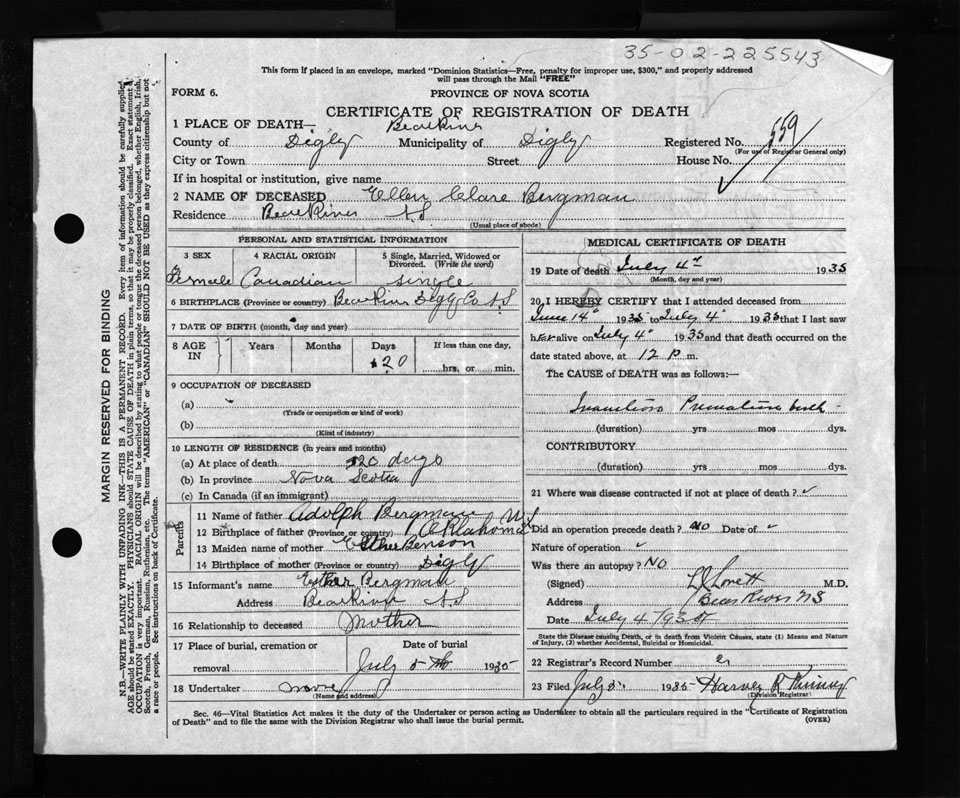 35-02-225543
This form if placed in an envelope, marked "Dominion Statistics—Free, penalty for improper use, $300," and properly addressed
will pass through the Mail "FREE"
FORM 6.
PROVINCE OF NOVA SCOTIA
CERTIFICATE OF REGISTRATION OF DEATH
1 PLACE OF DEATH— Bear River
County of Digby Municipality of Digby Registered No. 559
(For use of Registrar General only)
City or Town Street House No.
If in hospital or institution, give name
2 NAME OF DECEASED Ellen Clare Bergman
Residence Bear River N.S
(Usual place of abode)
PERSONAL AND STATISTICAL INFORMATION
3 SEX 4 RACIAL ORIGIN 5 Single, Married, Widowed or Divorced. (Write the word)
Female Canadian Single
6 BIRTHPLACE (Province or country) Bear River Digby Co N.S
7 DATE OF BIRTH (month, day and year)
8 AGE IN Years Months Days If less than one day,
20 hrs. or min.
9 OCCUPATION OF DECEASED
(a)
(Trade or occupation or kind of work)
(b)
(Kind of industry)
10 LENGTH OF RESIDENCE (in years and months)
(a) At place of death 20 days
(b) In province Nova Scotia
(c) In Canada (if an immigrant)
Parents
11 Name of father Adolph Bergman
12 Birthplace of father (Province or country) Oklahoma
13 Maiden name of mother Esther Benson
14 Birthplace of mother (Province or country) Digby
15 Informant's name Esther Bergman
Address Bear River N.S
16 Relationship to deceased Mother
17 Place of burial, cremation or removal Date of burial
July 5th 1935
18 Undertaker none
(Name and address)
MEDICAL CERTIFICATE OF DEATH
19 Date of death July 4th 1935
(Month, day and year)
20 I HEREBY CERTIFY that I attended deceased from
June 14" 1935 to July 4" 1935 that I last saw
her alive on July 4" 1935 and that death occurred on the
date stated above, at 12 p m.
The CAUSE of DEATH was as follows:—
Inanition Premature birth
(duration) yrs mos dys.
CONTRIBUTORY
(duration) yrs mos dys.
21 Where was disease contracted if not at place of death?
Did an operation precede death? No Date of
Nature of operation
Was there an autopsy? No
(Signed) L J Lovett M.D.
Address Bear River NS
Date July 4 1935
State the Disease causing Death, or in death from Violent Causes, state (1) Means and Nature of Injury, (2) whether Accidental, Suicidal or Homicidal.
22 Registrar's Record Number
23 Filed July 1935 Harvey R
(Division Registrar)
Sec. 46—Vital Statistics Act makes it the duty of the Undertaker or person acting as Undertaker to obtain all the particulars required in the "Certificate of Registration
of Death" and to file the same with the Division Registrar who shall issue the burial permit.
(OVER)
MARGIN RESERVED FOR BINDING
N.B.—WRITE PLAINLY WITH UNFADING INK—THIS IS A PERMANENT RECORD. Every item of information should be carefully supplied.
AGE should be stated EXACTLY. PHYSICIANS should STATE CAUSE OF DEATH in plain terms, so that it may be properly classified. Exact statement of
OCCUPATION is very important. RACIAL ORIGIN will be described by stating to what people or tongue the deceased person belonged, whether English, Irish,
Scotch, French, German, Russian, Ruthenian, etc. The terms "AMERICAN" or "CANADIAN" SHOULD NOT BE USED as they express citizenship but not
a race or people. See instructions on back of Certificate.